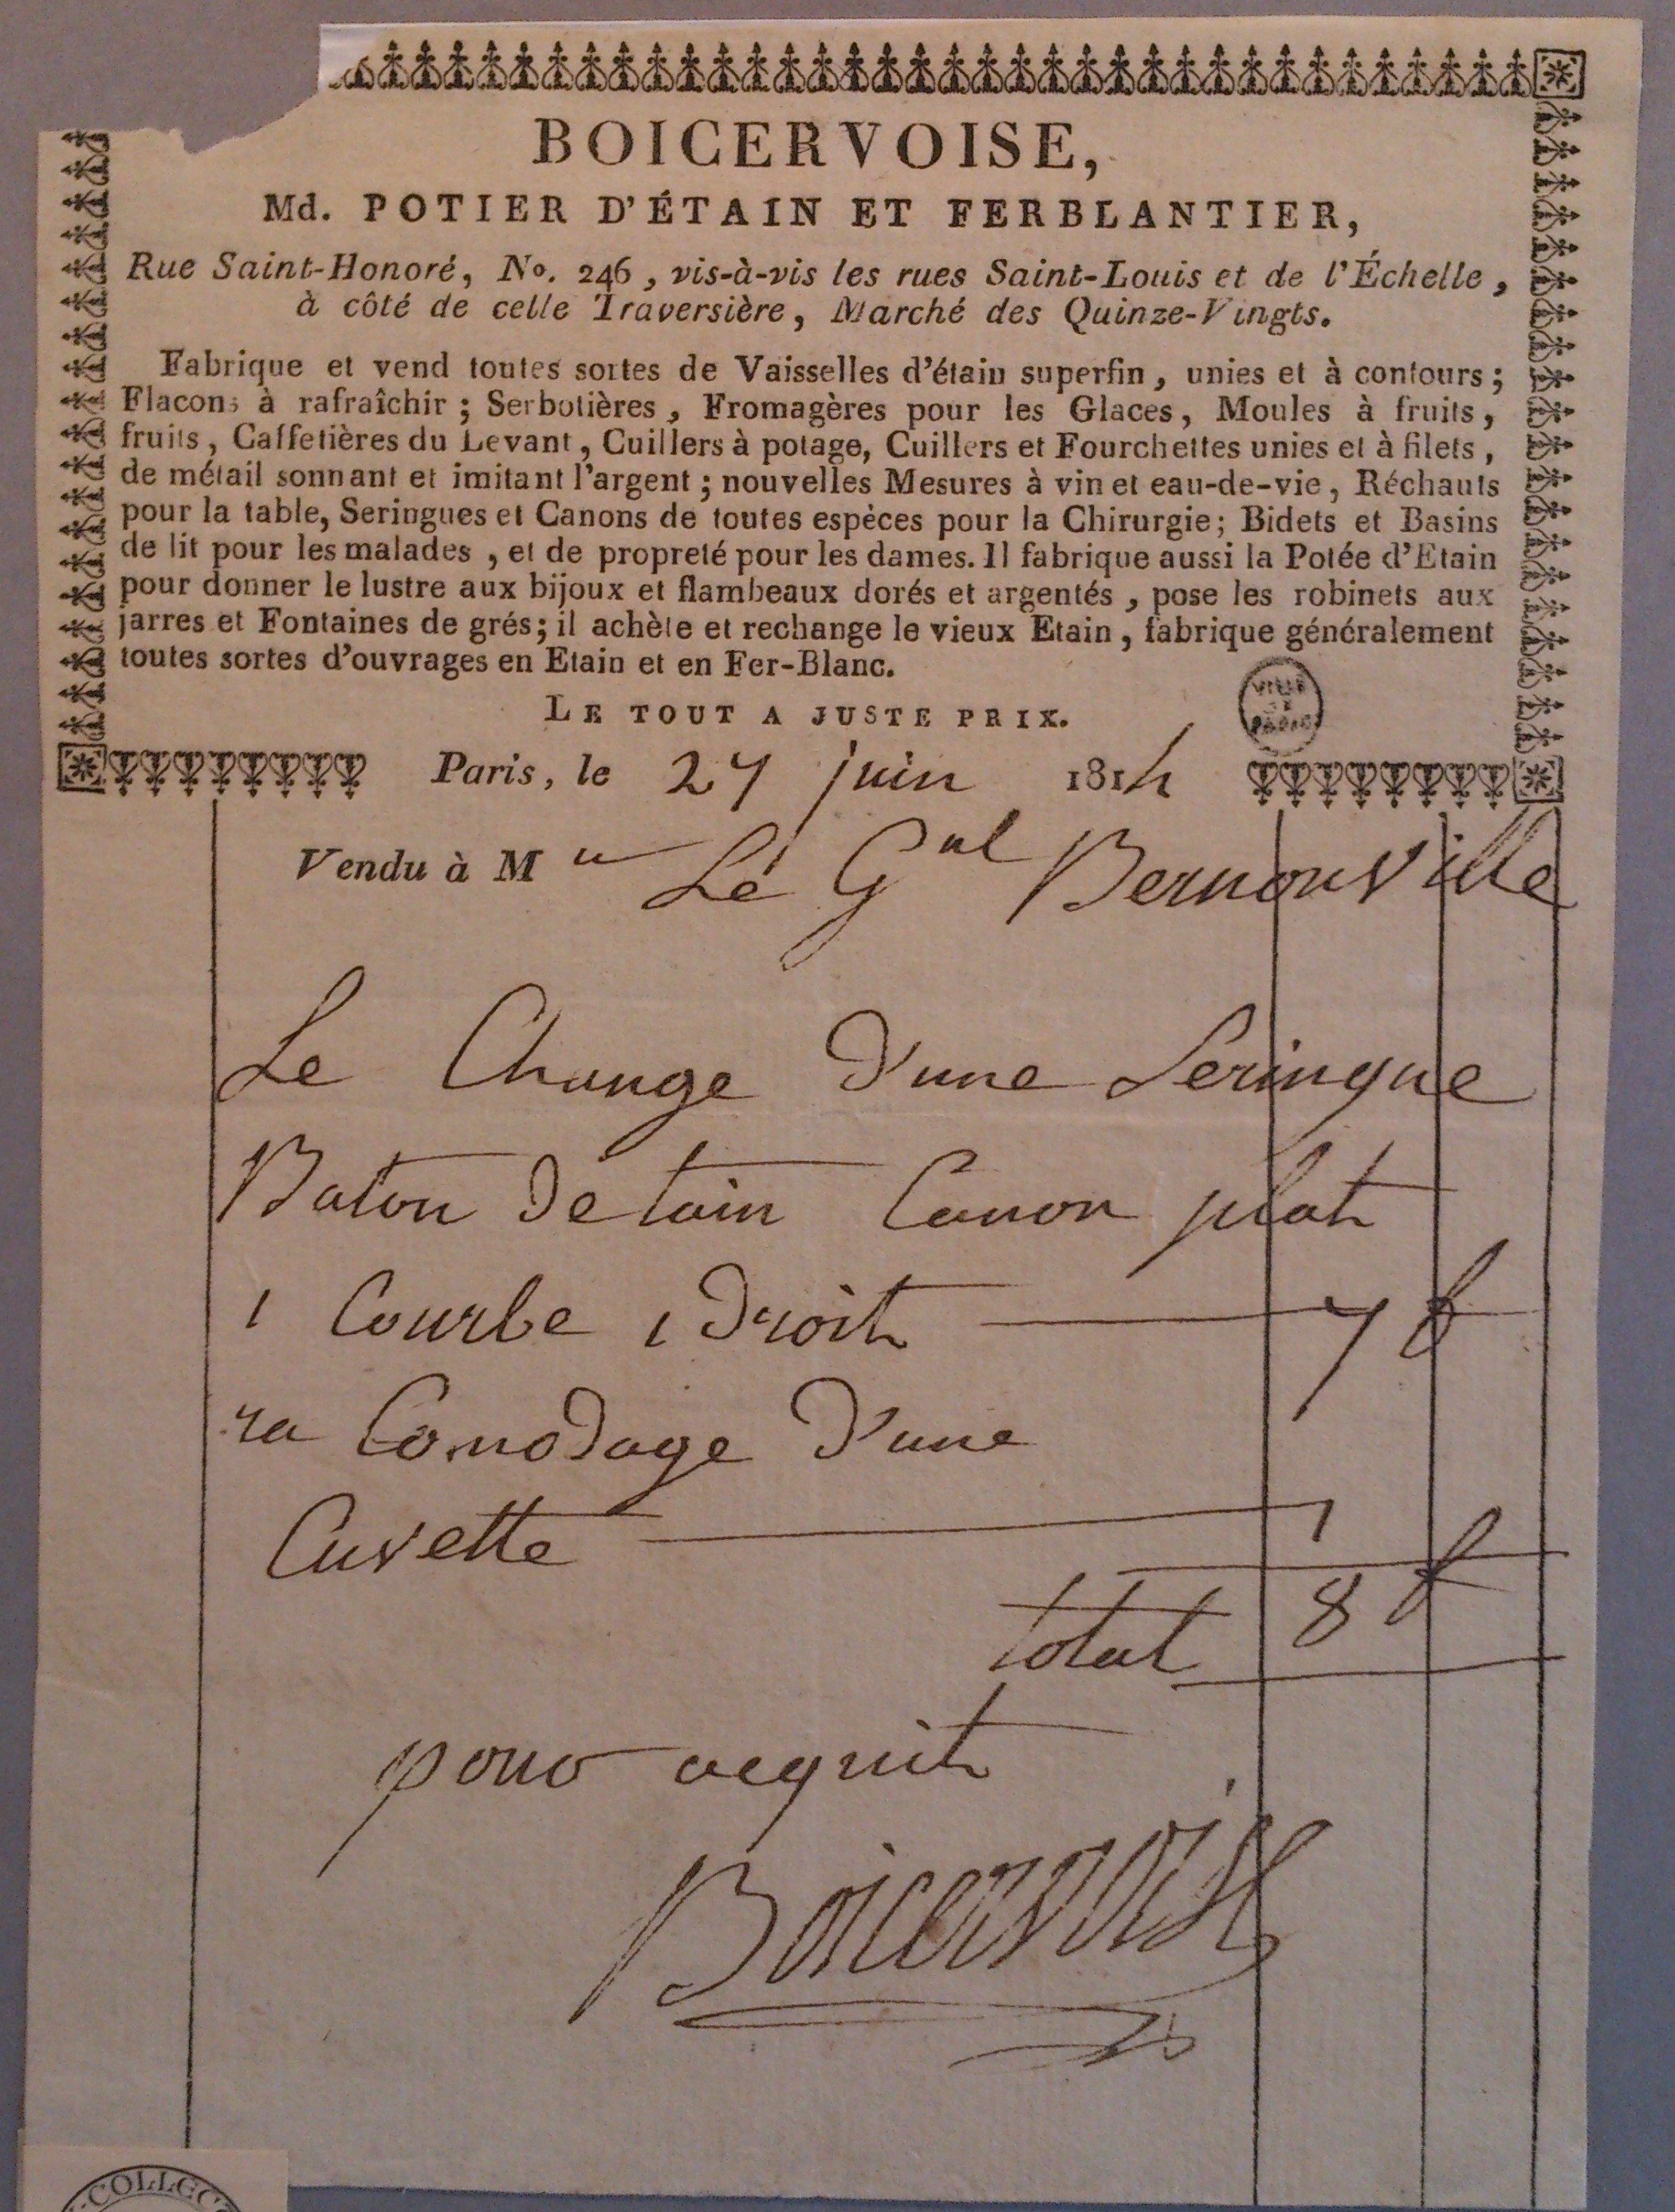 BOICERVOISE,
Md. POTIER D'ÉTAIN ET FERBLANTIER,
Rue Saint-Honoré, No. 246, vis-à-vis les rues Saint-Louis et de l'Échelle,
à côté de celle Traversière, Marché des Quinze-Vingts.
Fabrique et vend toutes sortes de Vaisselles d'étain superfin, unies et à contours;
Flacons à rafraîchir; Serbotières, Fromagères pour les Glaces, Moules à fruits,
fruits, Caffetières du Levant, Cuillers à potage, Cuillers et Fourchettes unies et à filets,
de métail sonnant et imitant l'argent; nouvelles Mesures à vin et eau-de-vie, Réchauts
pour la table, Seringues et Canons de toutes espèces pour la Chirurgie; Bidets et Basins
de lit pour les malades, et de propreté pour les dames. Il fabrique aussi la Potée d'Etain
pour donner le lustre aux bijoux et flambeaux dorés et argentés, pose les robinets aux
jarres et Fontaines de grés; il achète et rechange le vieux Etain, fabrique généralement
toutes sortes d'ouvrages en Etain et en Fer-Blanc.
LE TOUT A JUSTE PRIX.
VILLE DE PARIS
Paris, le 27 juin 1814
Vendu à Mr Le Gal Bernonville
Le Change d'une Seringue
Baton detain Canon plat
1 Courbe 1 droit 7 f
ra Comodage d'une
Cuvette 1
total 8 f
pour acquit
Boicervoise
COLLEC